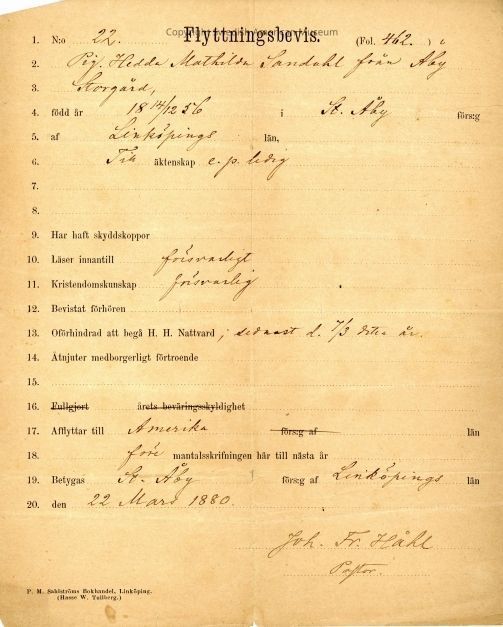 Copyright Swedish American Museum
Flyttningsbevis.
1. N:o 22. (Fol. 462.) i
2. Pig. Hedda Mathilda Sandahl från Åby
3. Storgård,
4. född år 18 14/12 56 i St. Åby förs:g
5. af Linköpings län,
6. Till äktenskap e. p. ledig
7.
8.
9. Har haft skyddskoppor
10. Läser innantill försvarligt
11. Kristendomskunskap försvarlig
12. Bevistat förhören
13. Oförhindrad att begå H. H. Nattvard, sednast d. 7/3 detta år.
14. Åtnjuter medborgerligt förtroende
15.
16. Fullgjort årets beväringsskyldighet
17. Afflyttar till Amerika förs:g af län
18. före mantalsskrifningen här till nästa år
19. Betygas St. Åby förs:g af Linköpings län
20. den 22 Mars 1880.
Joh. Fr. Håhl
Pastor.
P. M. Sahlströms Bokhandel, Linköping.
(Hasse W. Tullberg.)